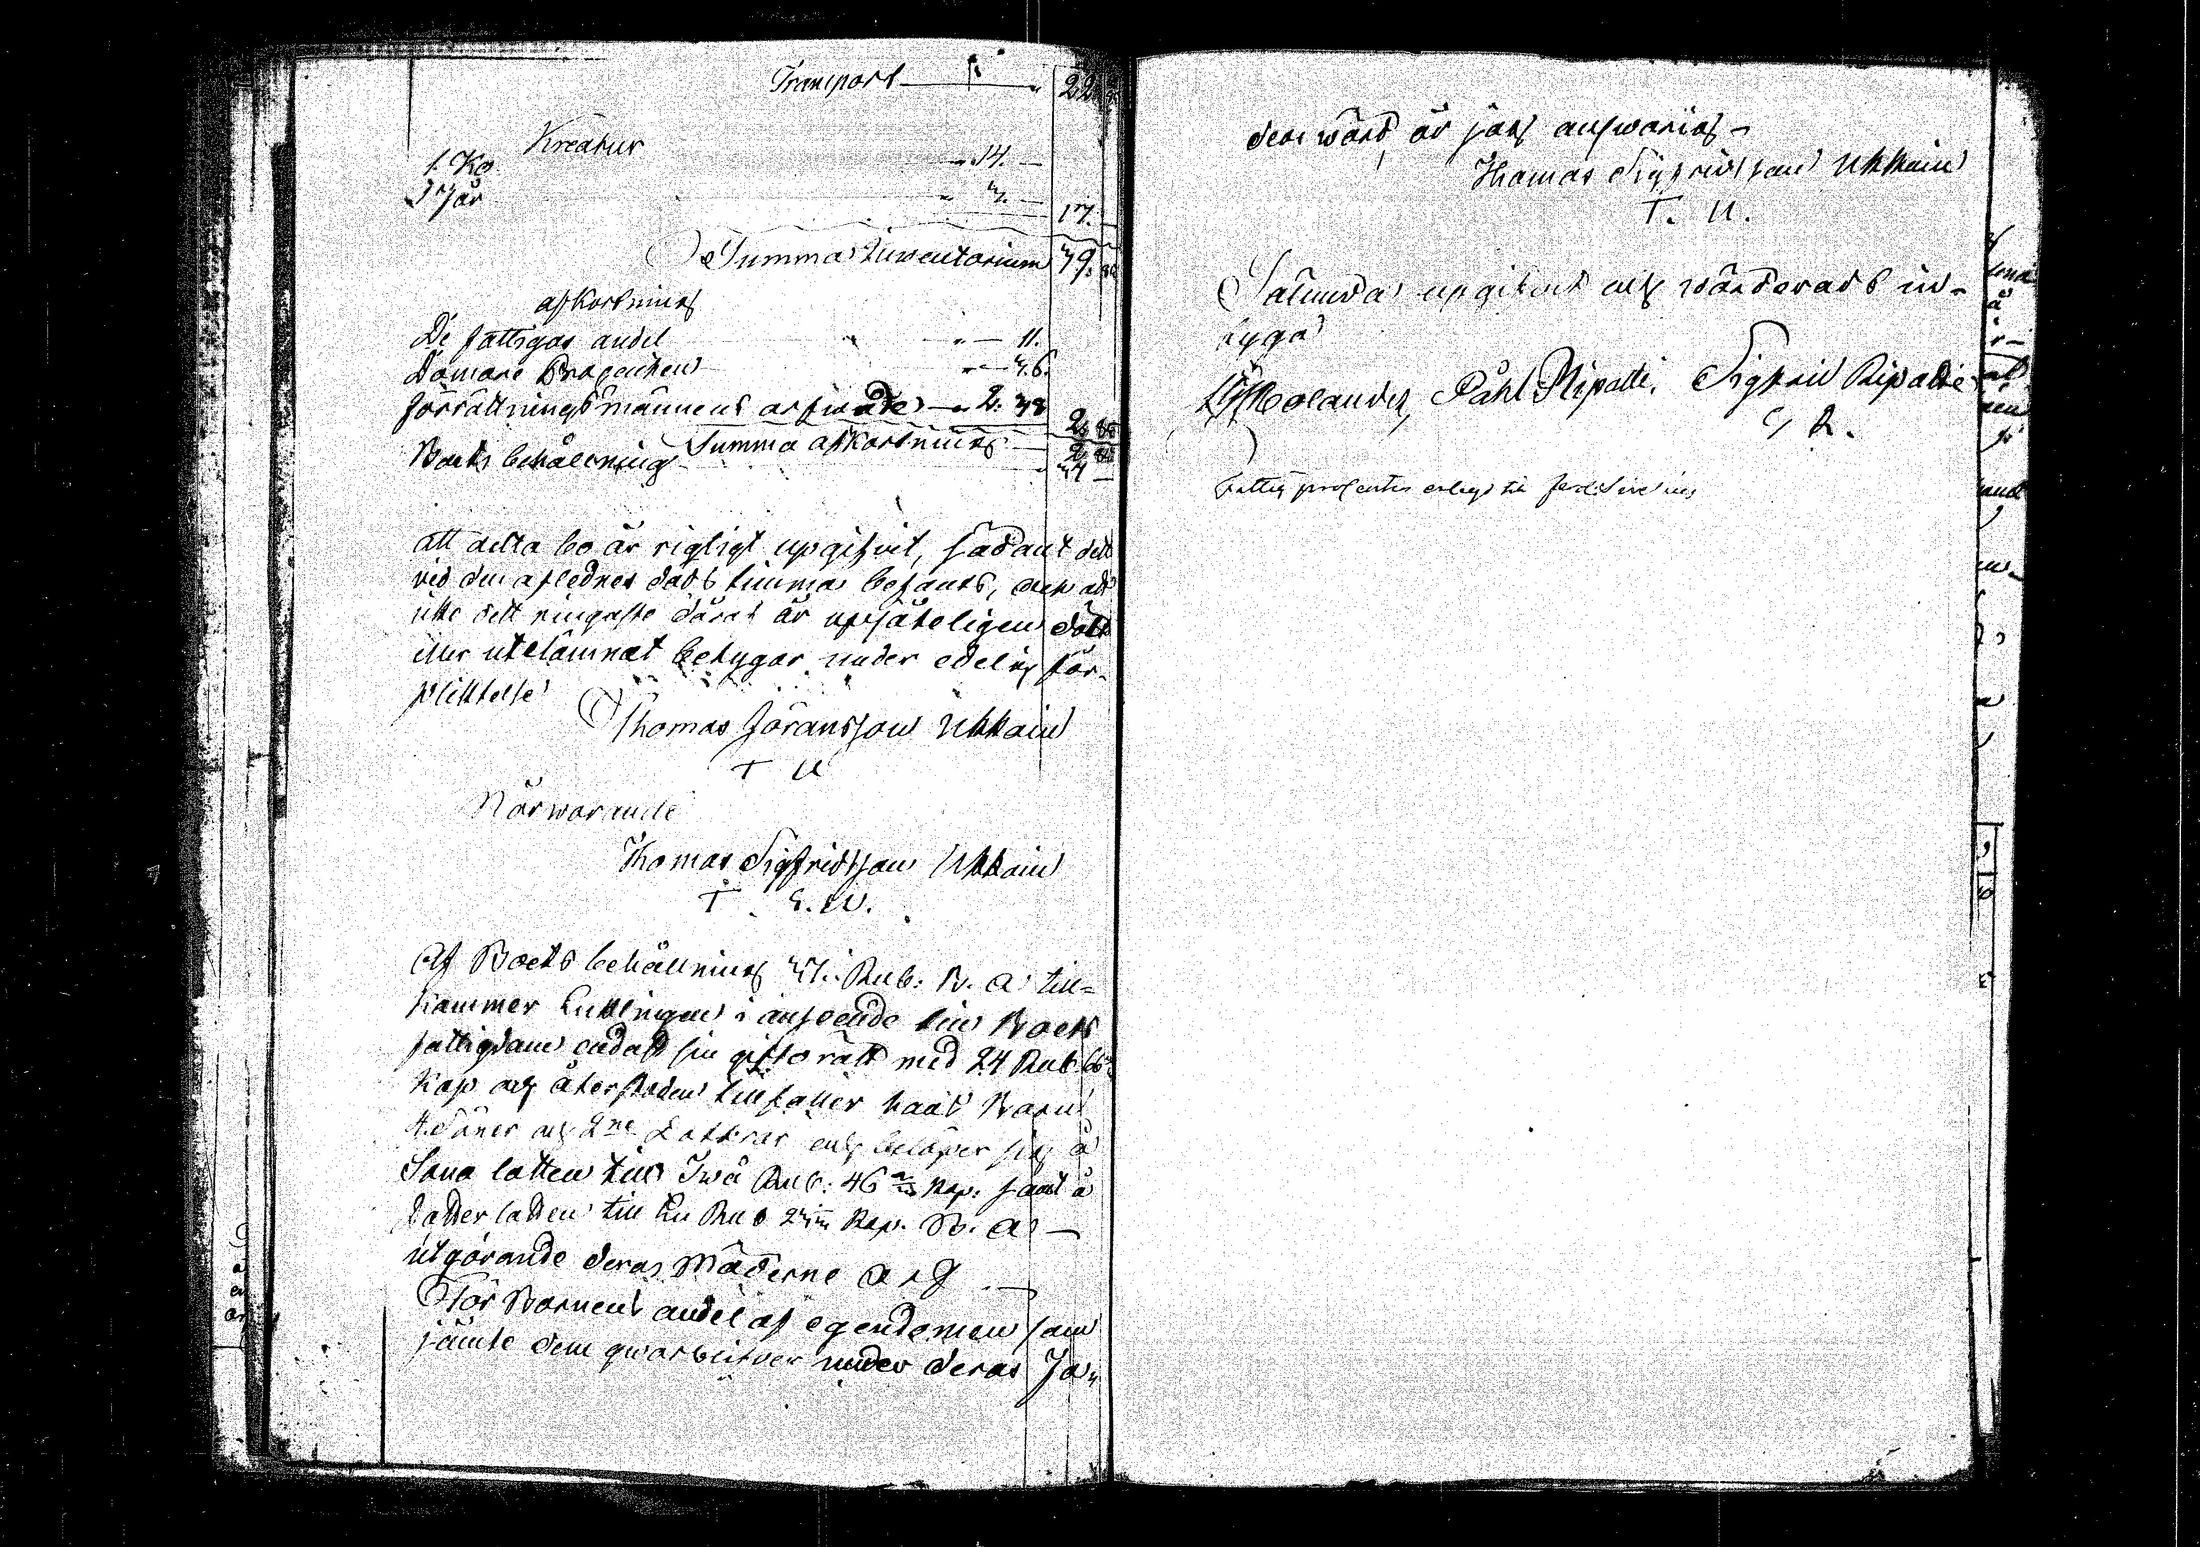 Transport 22.
Kreatur
1. Ko 14. —
1 Får 3. — 17. —
Summa Inventarium 39. 85
afkortning
De fattigas andel — 11.
Domare Procenten — 36.
förrättningsmännens arfwode — 2. 38 2. 85
Summa afkortning 2. 85
Boets behållning 37 —
att detta bo är rigtigt upgifvit, sådant det
vid den aflednes döds timma befants, och att
icke dett ringaste däraf är upsåteligen dålt
eller utelämnat betygar under edelig för-
plicktelse
Thomas Jöransson Ukkoin
T U
Närwarande
Thomas Sigfridsson Ukkoin
T. S. U.
Af Boets behållning 37. Rub. B. A. till-
kommer Enklingen i anseende till Boets
fattigdom endast sin gifto rätt med 24 Rub. 66
Kop och återstoden tillfaller 
4. Söner och 2ne Dottrar och belöper sig å
Sona lotten till Två Rub. 46 Kop. samt å
Dotter lotten till En Rub Kop. B. A. —
utgörande deras Möderne Arf —
För Barnens andel af egendomen som
jämte dem qwarblifver under deras Fa-
ders wård, är jag answarig —
Thomas Sigfridsson Ukkoin
T. U.
Sålunda upgifvet och wärderat be-
tyga
Molander, Påhl Ripatti, Sigfrid Ripatti
S R.
Fattig procenten erlagd